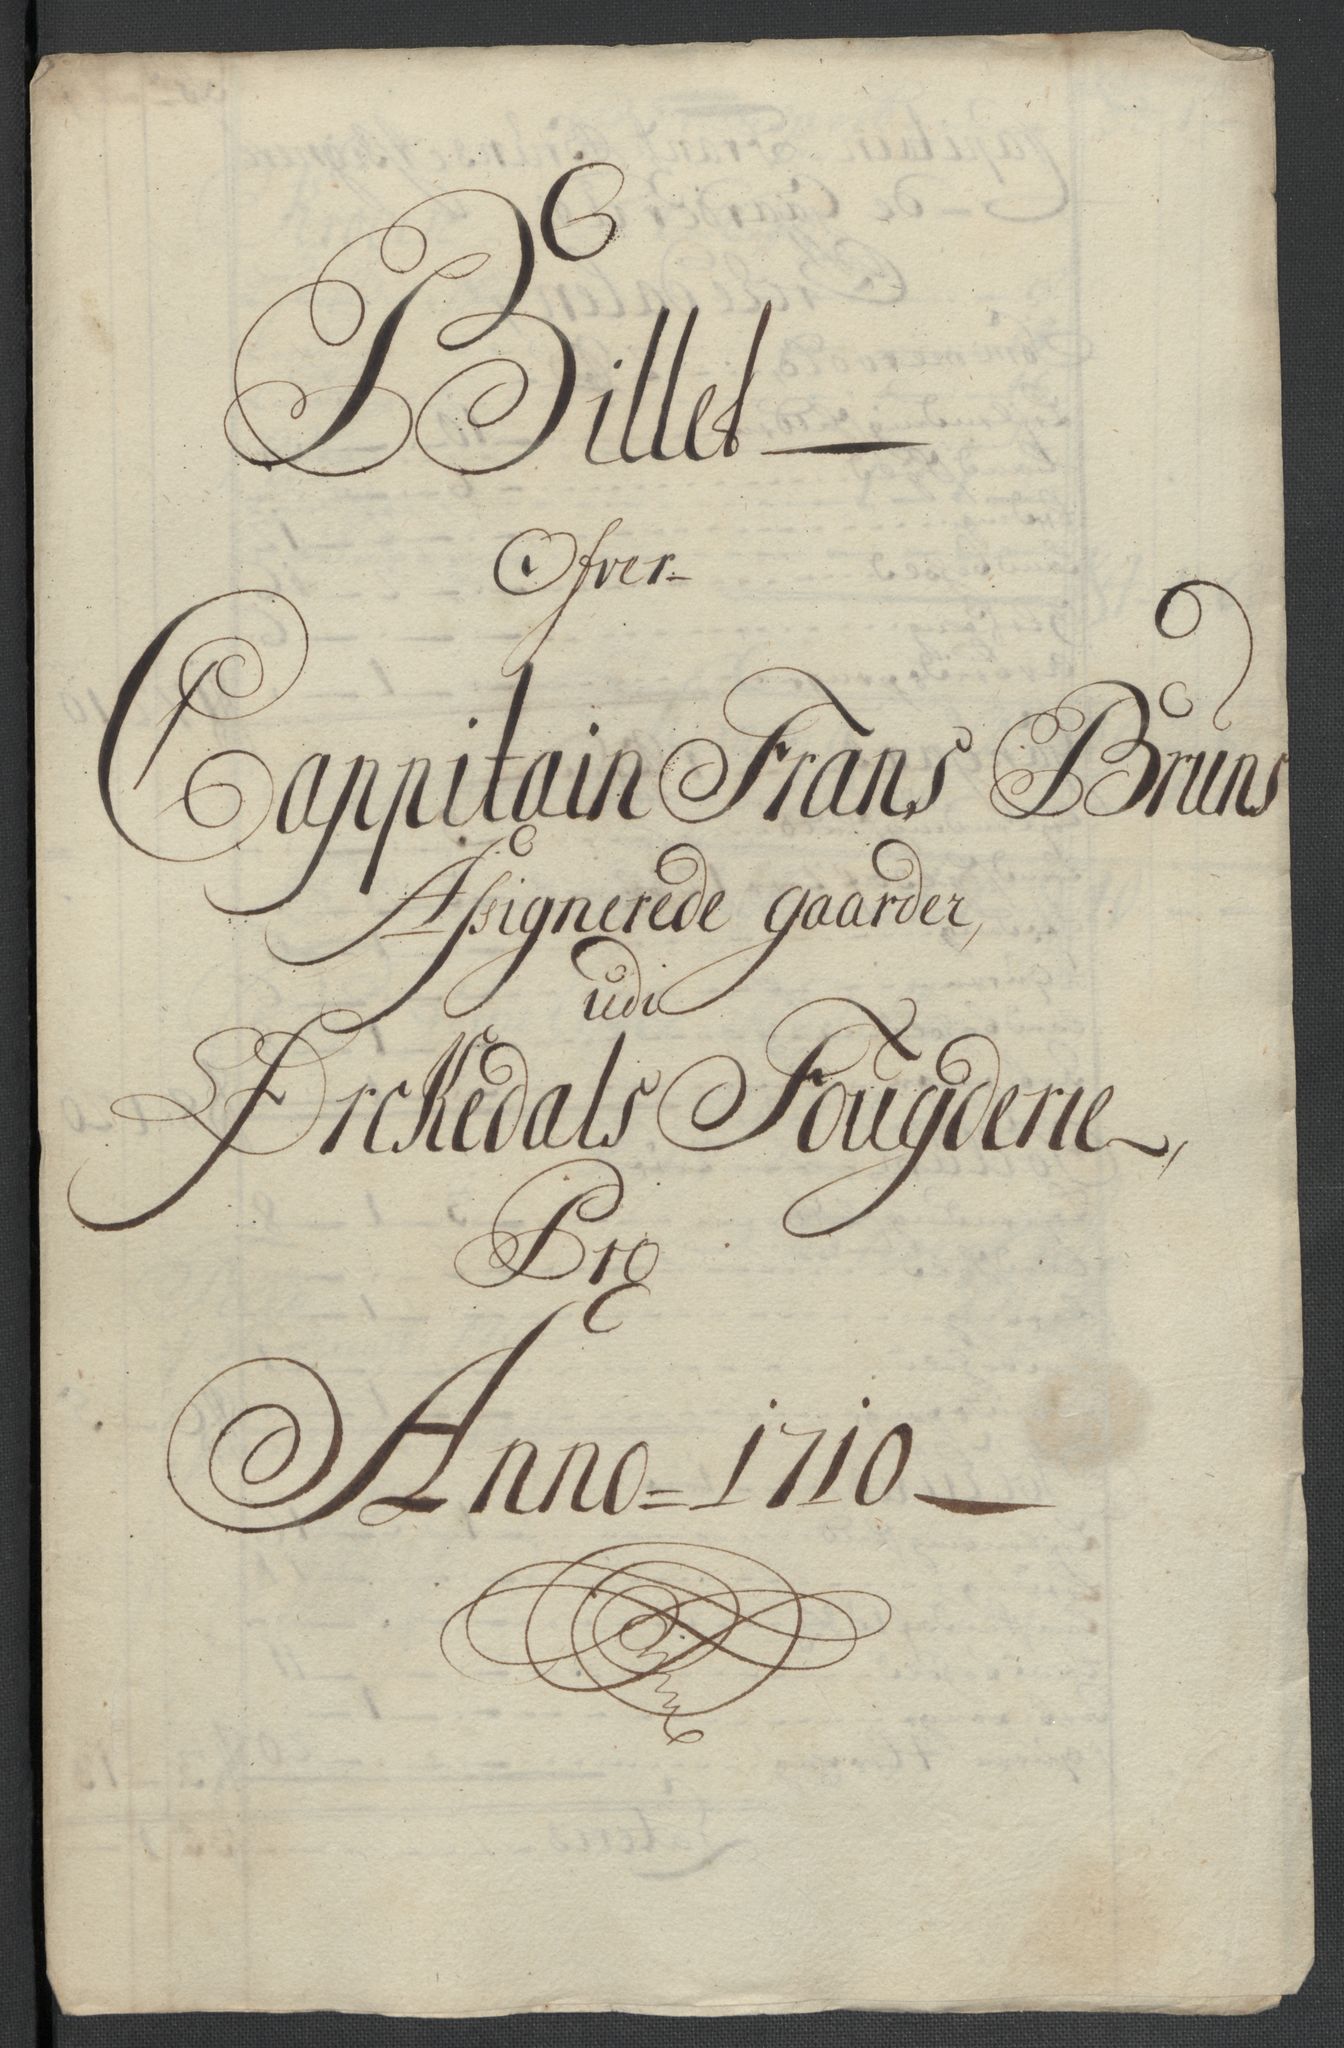 Billet
Ofver
Cappitain Frans Bruns
Assignerede gaarder,
udi
Orckedals Fougderie,
Pro
Anno = 1710